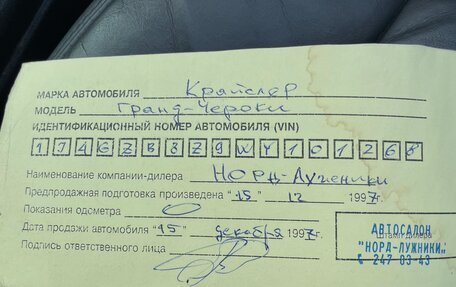 МАРКА АВТОМОБИЛЯ Крайслер
МОДЕЛЬ Гранд-Чероки
ИДЕНТИФИКАЦИОННЫЙ НОМЕР АВТОМОБИЛЯ (VIN)
1J4GZB8Z9WY101268
Наименование компании-дилера НОРД-Лужники
Предпродажная подготовка произведена "15" 12 1997г.
Показания одометра 0
Дата продажи автомобиля "15" декабря 1997г.
Подпись ответственного лица
АВТОСАЛОН
"НОРД-ЛУЖНИКИ"
Штамп дилера
247 03 43